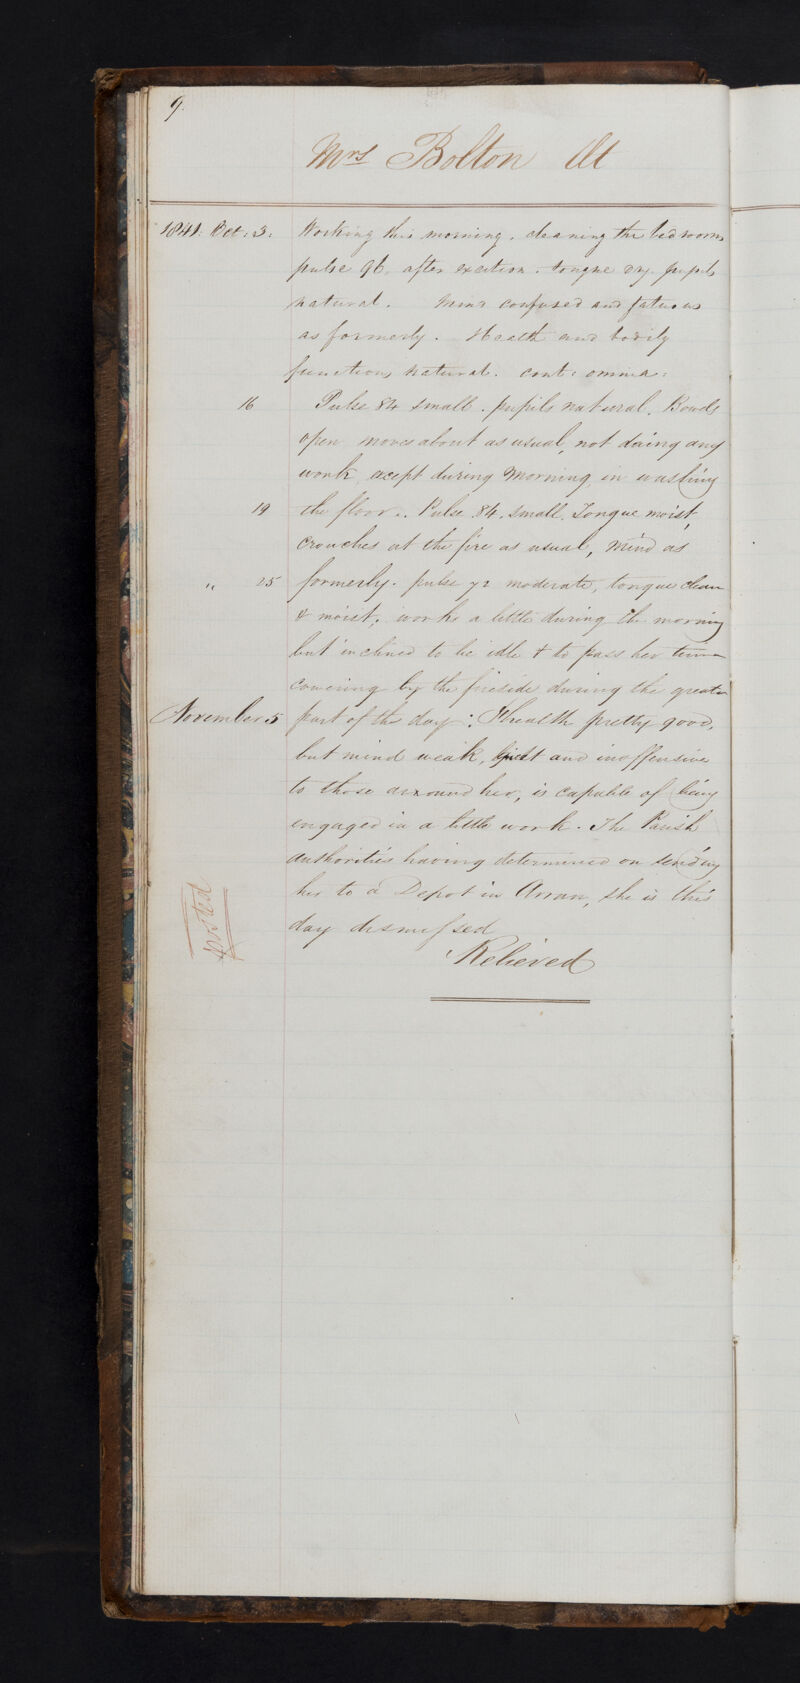 9.
Mrs Bolton
1841. Oct: 3: Working this morning, cleaning the bedrooms
pulse 96, after exertion. tongue dry. pupils
natural. Mind confused and fatuous
as formerly. Health and bodily
functions natural. cont: omnia:
16 Pulse 84 small. pupils natural. Bowels
open moves about as usual, not doing any
work, except during Morning in washing
19 the floor.. Pulse 84. small. Tongue moist,
Crouches at the fire as usual, mind as
" 25 formerly. pulse 72 moderate, tongue clean
& moist; works a little during the morning
but inclined to be idle & to pass her time
cowering by the fireside during the greater
November 5 part of the day: Health pretty good,
but mind weak, quiet and inoffensive
to those around her, is capable of being
engaged in a little work. The Parish
authorities having determined on sending
her to a Depot in Arran, she is this
day dismissed
Relieved
posted